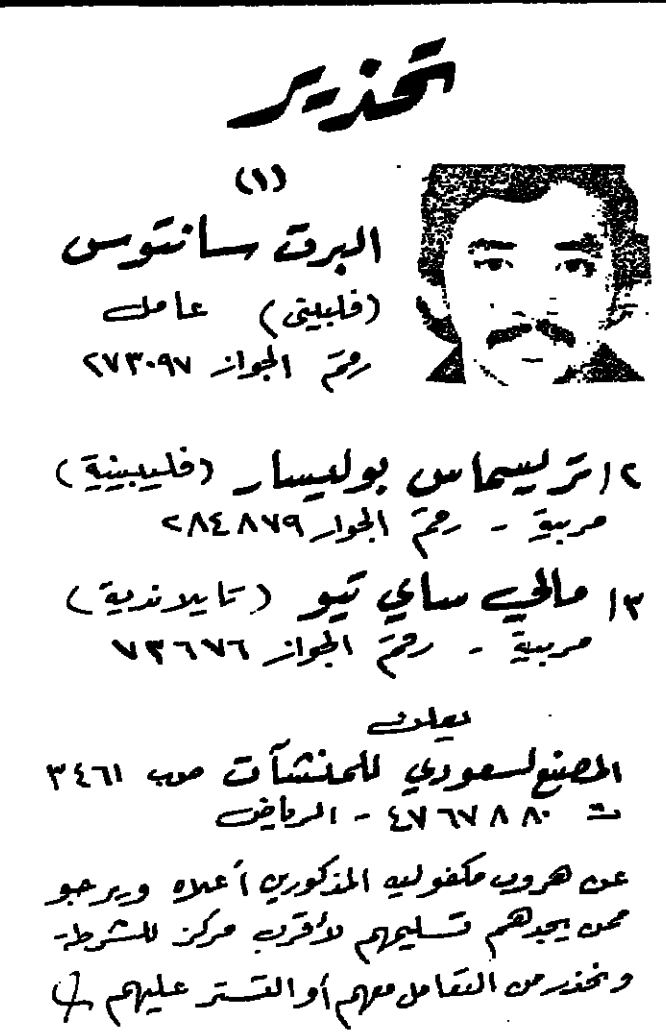 تحذير
(١)
البرت سانتوس
(فلبيني) عامل
رقم الجواز ٢٧٣٠٩٧
٢/ تريسماس بوليسار (فليبينية)
مربية - رقم الجواز ٢٨٤٨٧٩
٣/ مالي ساي تيو (تايلاندية)
مربية - رقم الجواز ٧٣٦٧٦
يعلن
المصنع السعودي للمنشآت ص ب ٣٤٦١
ت ٤٧٦٧٨٨٠ - الرياض
عن هروب مكفوليه المذكورين أعلاه ويرجو
ممن يجدهم تسليمهم لأقرب مركز للشرطة
ونحذر من التعامل معهم أو التستر عليهم